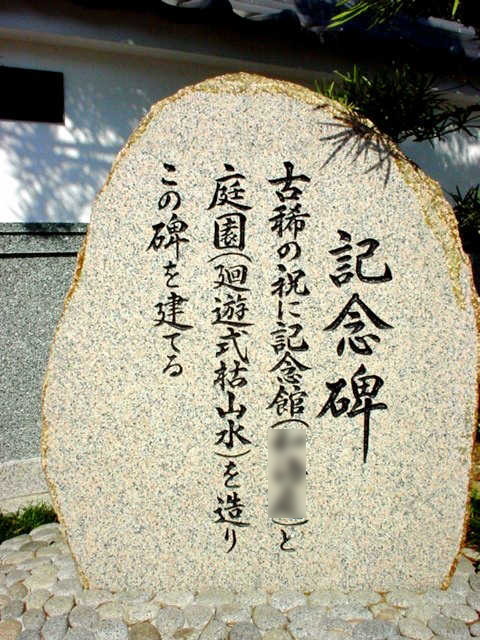 記念碑
古稀の祝に記念館()と
庭園(廻遊式枯山水)を造り
この碑を建てる